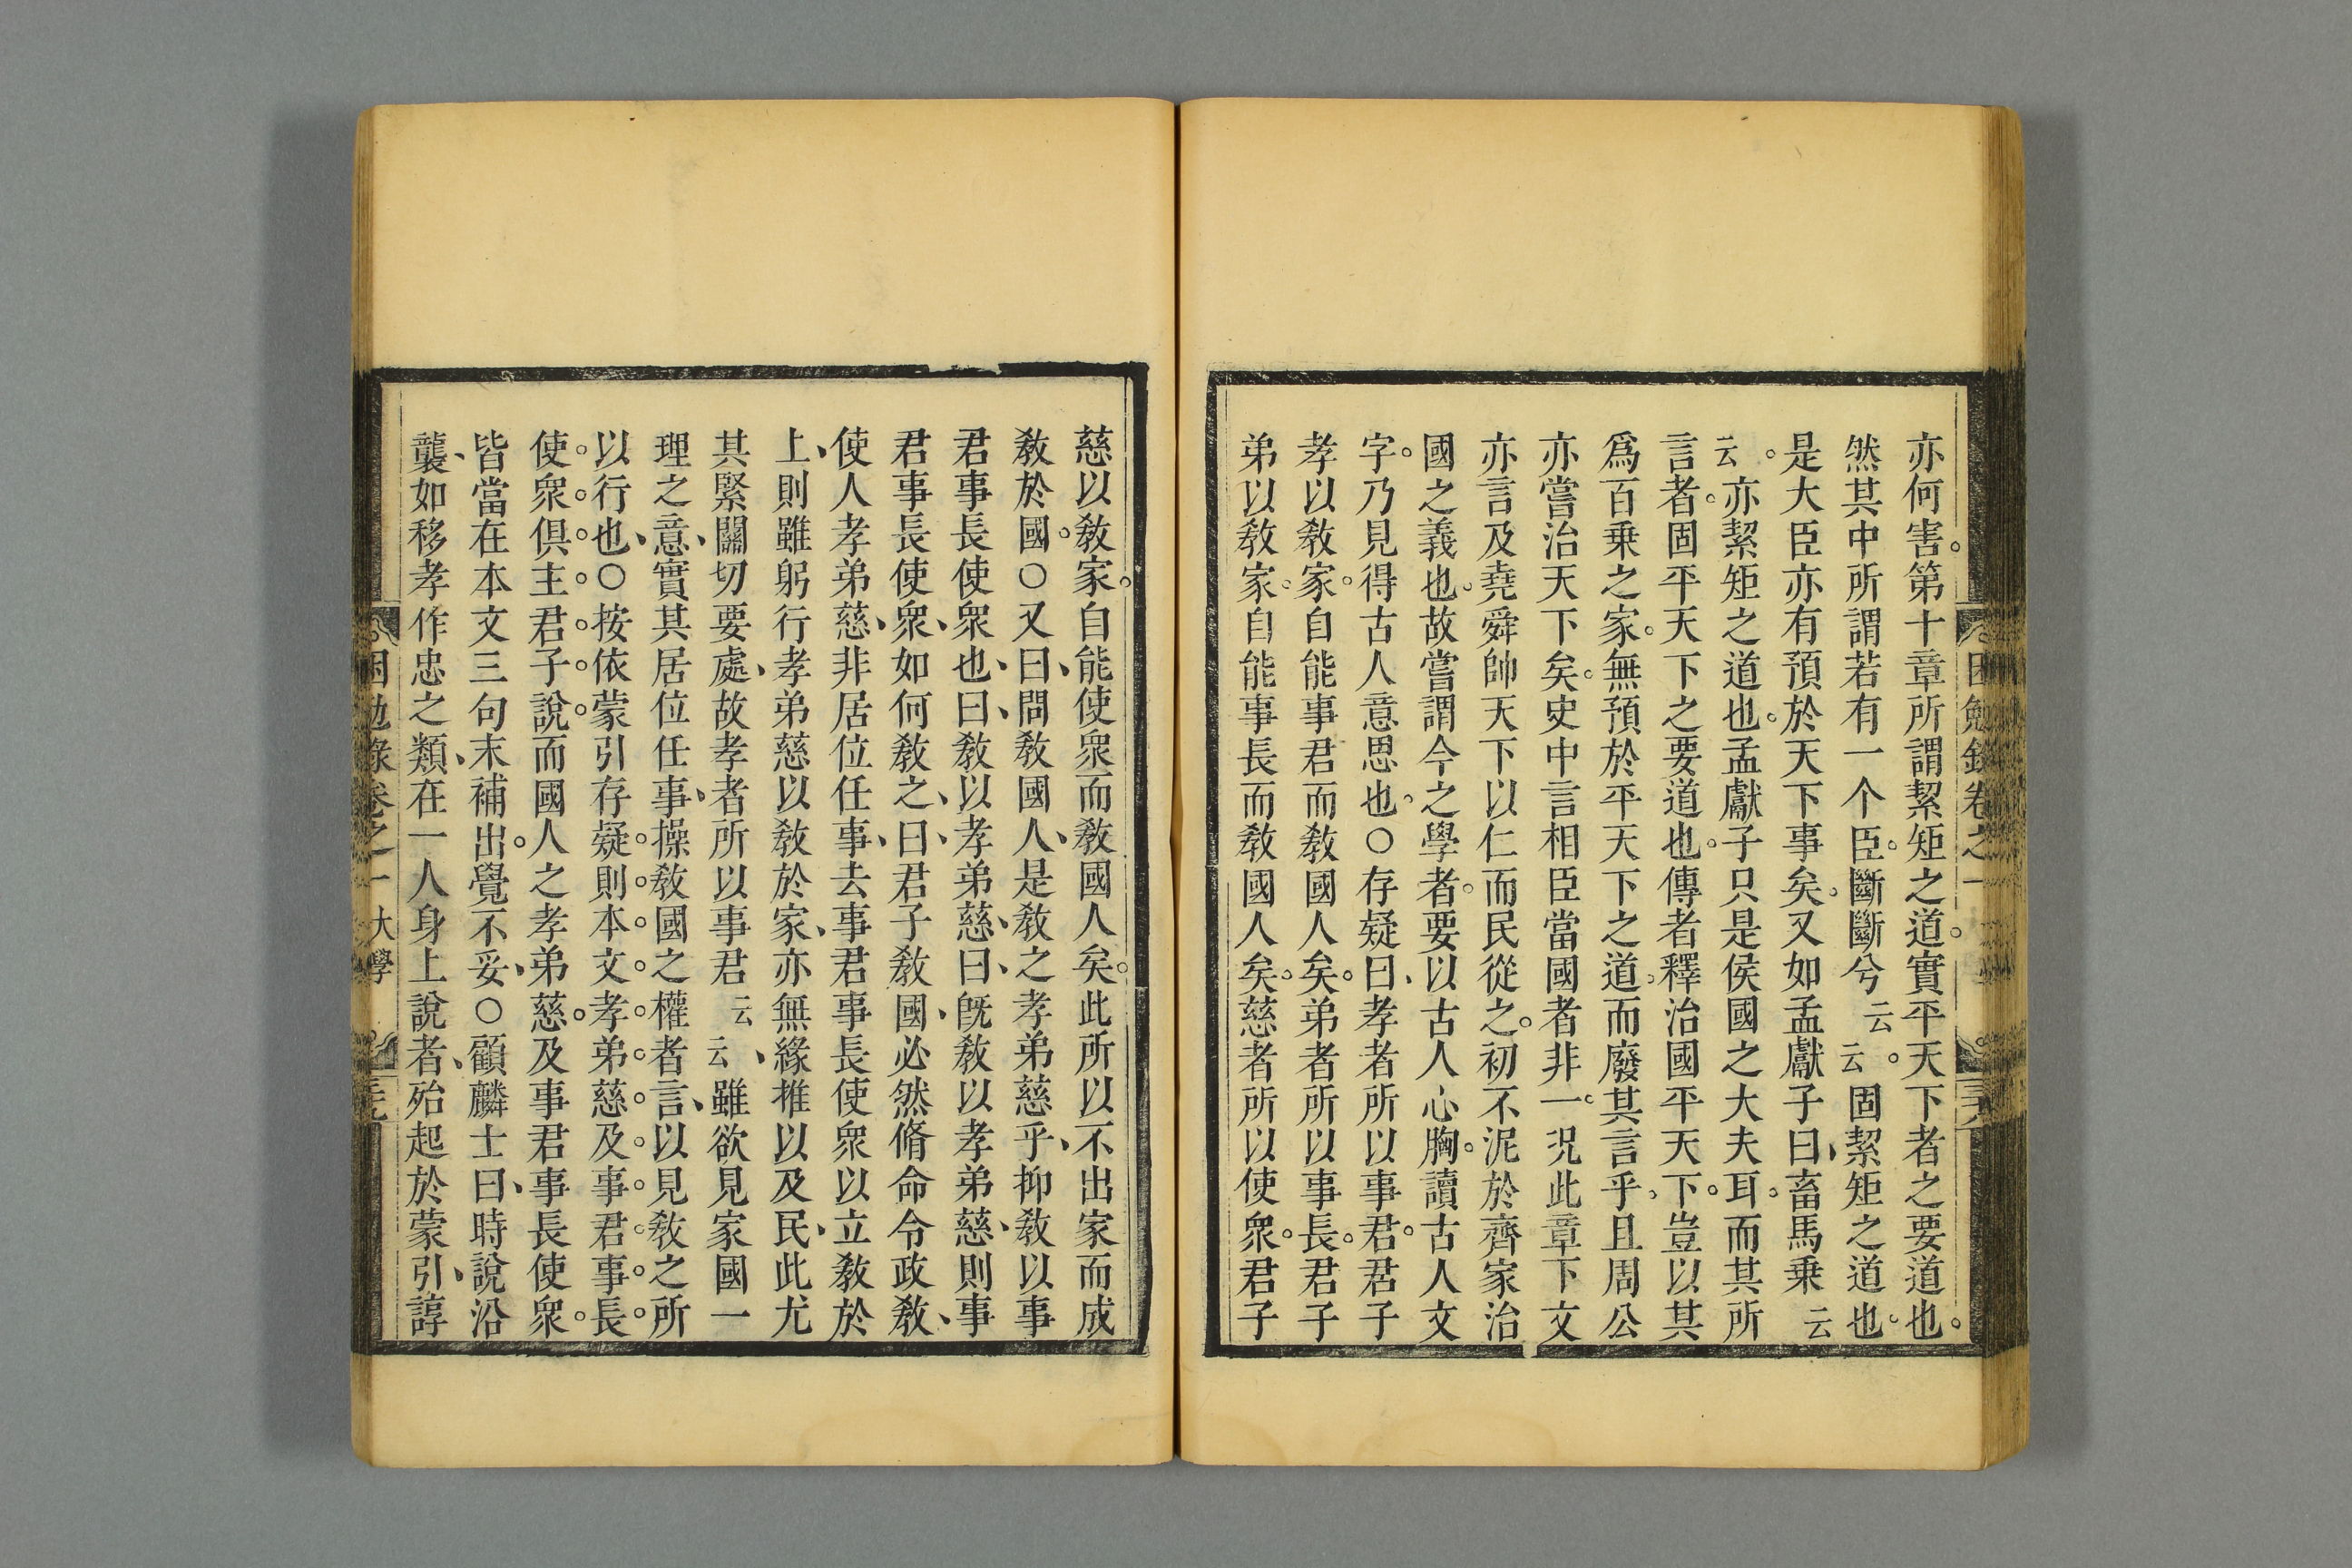 亦何害。第十章所謂絜矩之道。實平天下者之要道也。
然其中所謂若有一个臣。斷斷兮云云。固絜矩之道也。
是大臣亦有預於天下事矣。又如孟獻子曰、畜馬乗云
云。亦絜矩之道也。孟獻子只是侯國之大夫耳。而其所
言者。固平天下之要道也。傳者釋治國平天下。豈以其
爲百乗之家。無預於平天下之道。而廢其言乎。且周公
亦嘗治天下矣。史中言相臣當國者非一。況此章下文
亦言及堯舜帥天下以仁而民從之。初不泥於齊家治
國之義也。故嘗謂今之學者。要以古人心胸。讀古人文
字。乃見得古人意思也。○存疑曰、孝者所以事君。君子
孝以教家。自能事君而教國人矣。弟者所以事長。君子
弟以教家。自能事長而教國人矣。慈者所以使衆。君子
慈以教家。自能使衆而教國人矣。此所以不出家而成
教於國。○又曰、問教國人、是教之孝弟慈乎、抑教以事
君事長使衆也、曰、教以孝弟慈、曰、旣教以孝弟慈、則事
君事長使衆、如何教之、曰、君子教國、必然脩命令政教、
使人孝弟慈、非居位任事、去事君事長使衆以立教於
上、則雖躬行孝弟慈以教於家、亦無緣推以及民、此尤
其緊關切要處、故孝者所以事君云云、雖欲見家國一
理之意、實其居位任事、操教國之權者言、以見教之所
以行也、○按依蒙引存疑。則本文孝弟慈及事君事長
使衆俱主君子說。而國人之孝弟慈。及事君事長使衆。
皆當在本文三句末補出。覺不妥、○顧麟士曰、時說沿
襲、如移孝作忠之類、在一人身上說者、殆起於蒙引、諄
困勉錄卷之一
三六
困勉錄卷之一 大學
三七